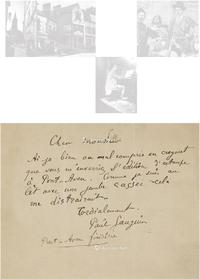 Cher monsieur
Ai je bien ou mal compris en croyant
que vous m'enverriez l'édition d'estampe
à Pont-Aven. Comme je suis au
lit avec une jambe cassée cela
me distrairait.
Cordialement
Paul Gauguin
Pont-Aven finistère